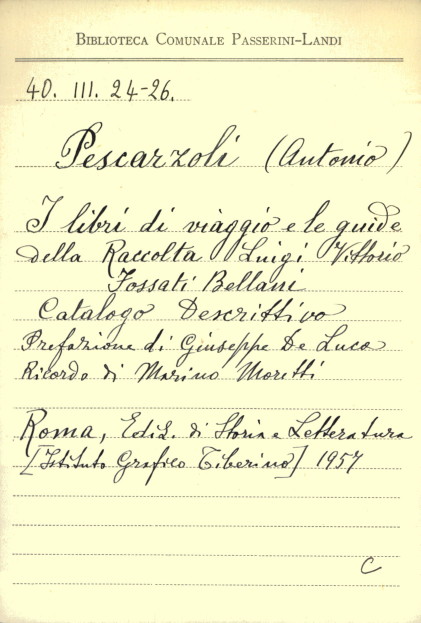 BIBLIOTECA COMUNALE PASSERINI-LANDI
4D. III. 24-26.
Pescarzoli (Antonio)
I libri di viaggio e le guide
della Raccolta Luigi Vittorio
Fossati Bellani
Catalogo Descrittivo
Prefazione di Giuseppe De Luca
Ricordo di Marino Moretti
Roma, Ediz. di Storia e Letteratura
[Istituto Grafico Tiberino] 1957
C